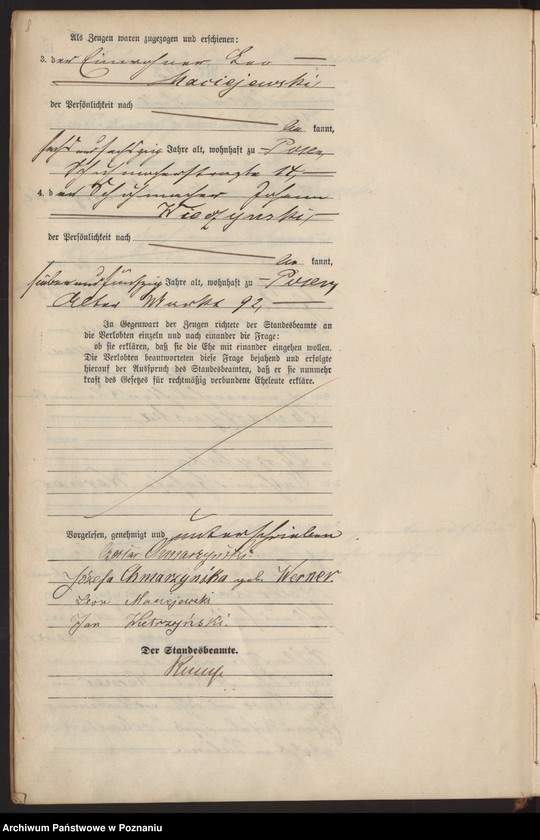 8
Als Zeugen waren zugezogen und erschienen:
3. der Einwohner Leo
Maciejewski,
der Persönlichkeit nach
kannt,
sechsundsechzig Jahre alt, wohnhaft zu Posen
Schuhmacherstraße 14,
4. der Schuhmacher Johann
der Persönlichkeit nach
kannt,
siebenundfünfzig Jahre alt, wohnhaft zu Posen,
Alter Markt 92,
In Gegenwart der Zeugen richtete der Standesbeamte an
die Verlobten einzeln und nach einander die Frage:
ob sie erklären, daß sie die Ehe mit einander eingehen wollen.
Die Verlobten beantworteten diese Frage bejahend und erfolgte
hierauf der Ausspruch des Standesbeamten, daß er sie nunmehr
kraft des Gesetzes für rechtmäßig verbundene Eheleute erkläre.
Vorgelesen, genehmigt und unterschrieben
Chmarzyński
Józefa Chmarzyńska geb. Werner
Leon Maciejewski
Jan
Der Standesbeamte.
Archiwum Państwowe w Poznaniu